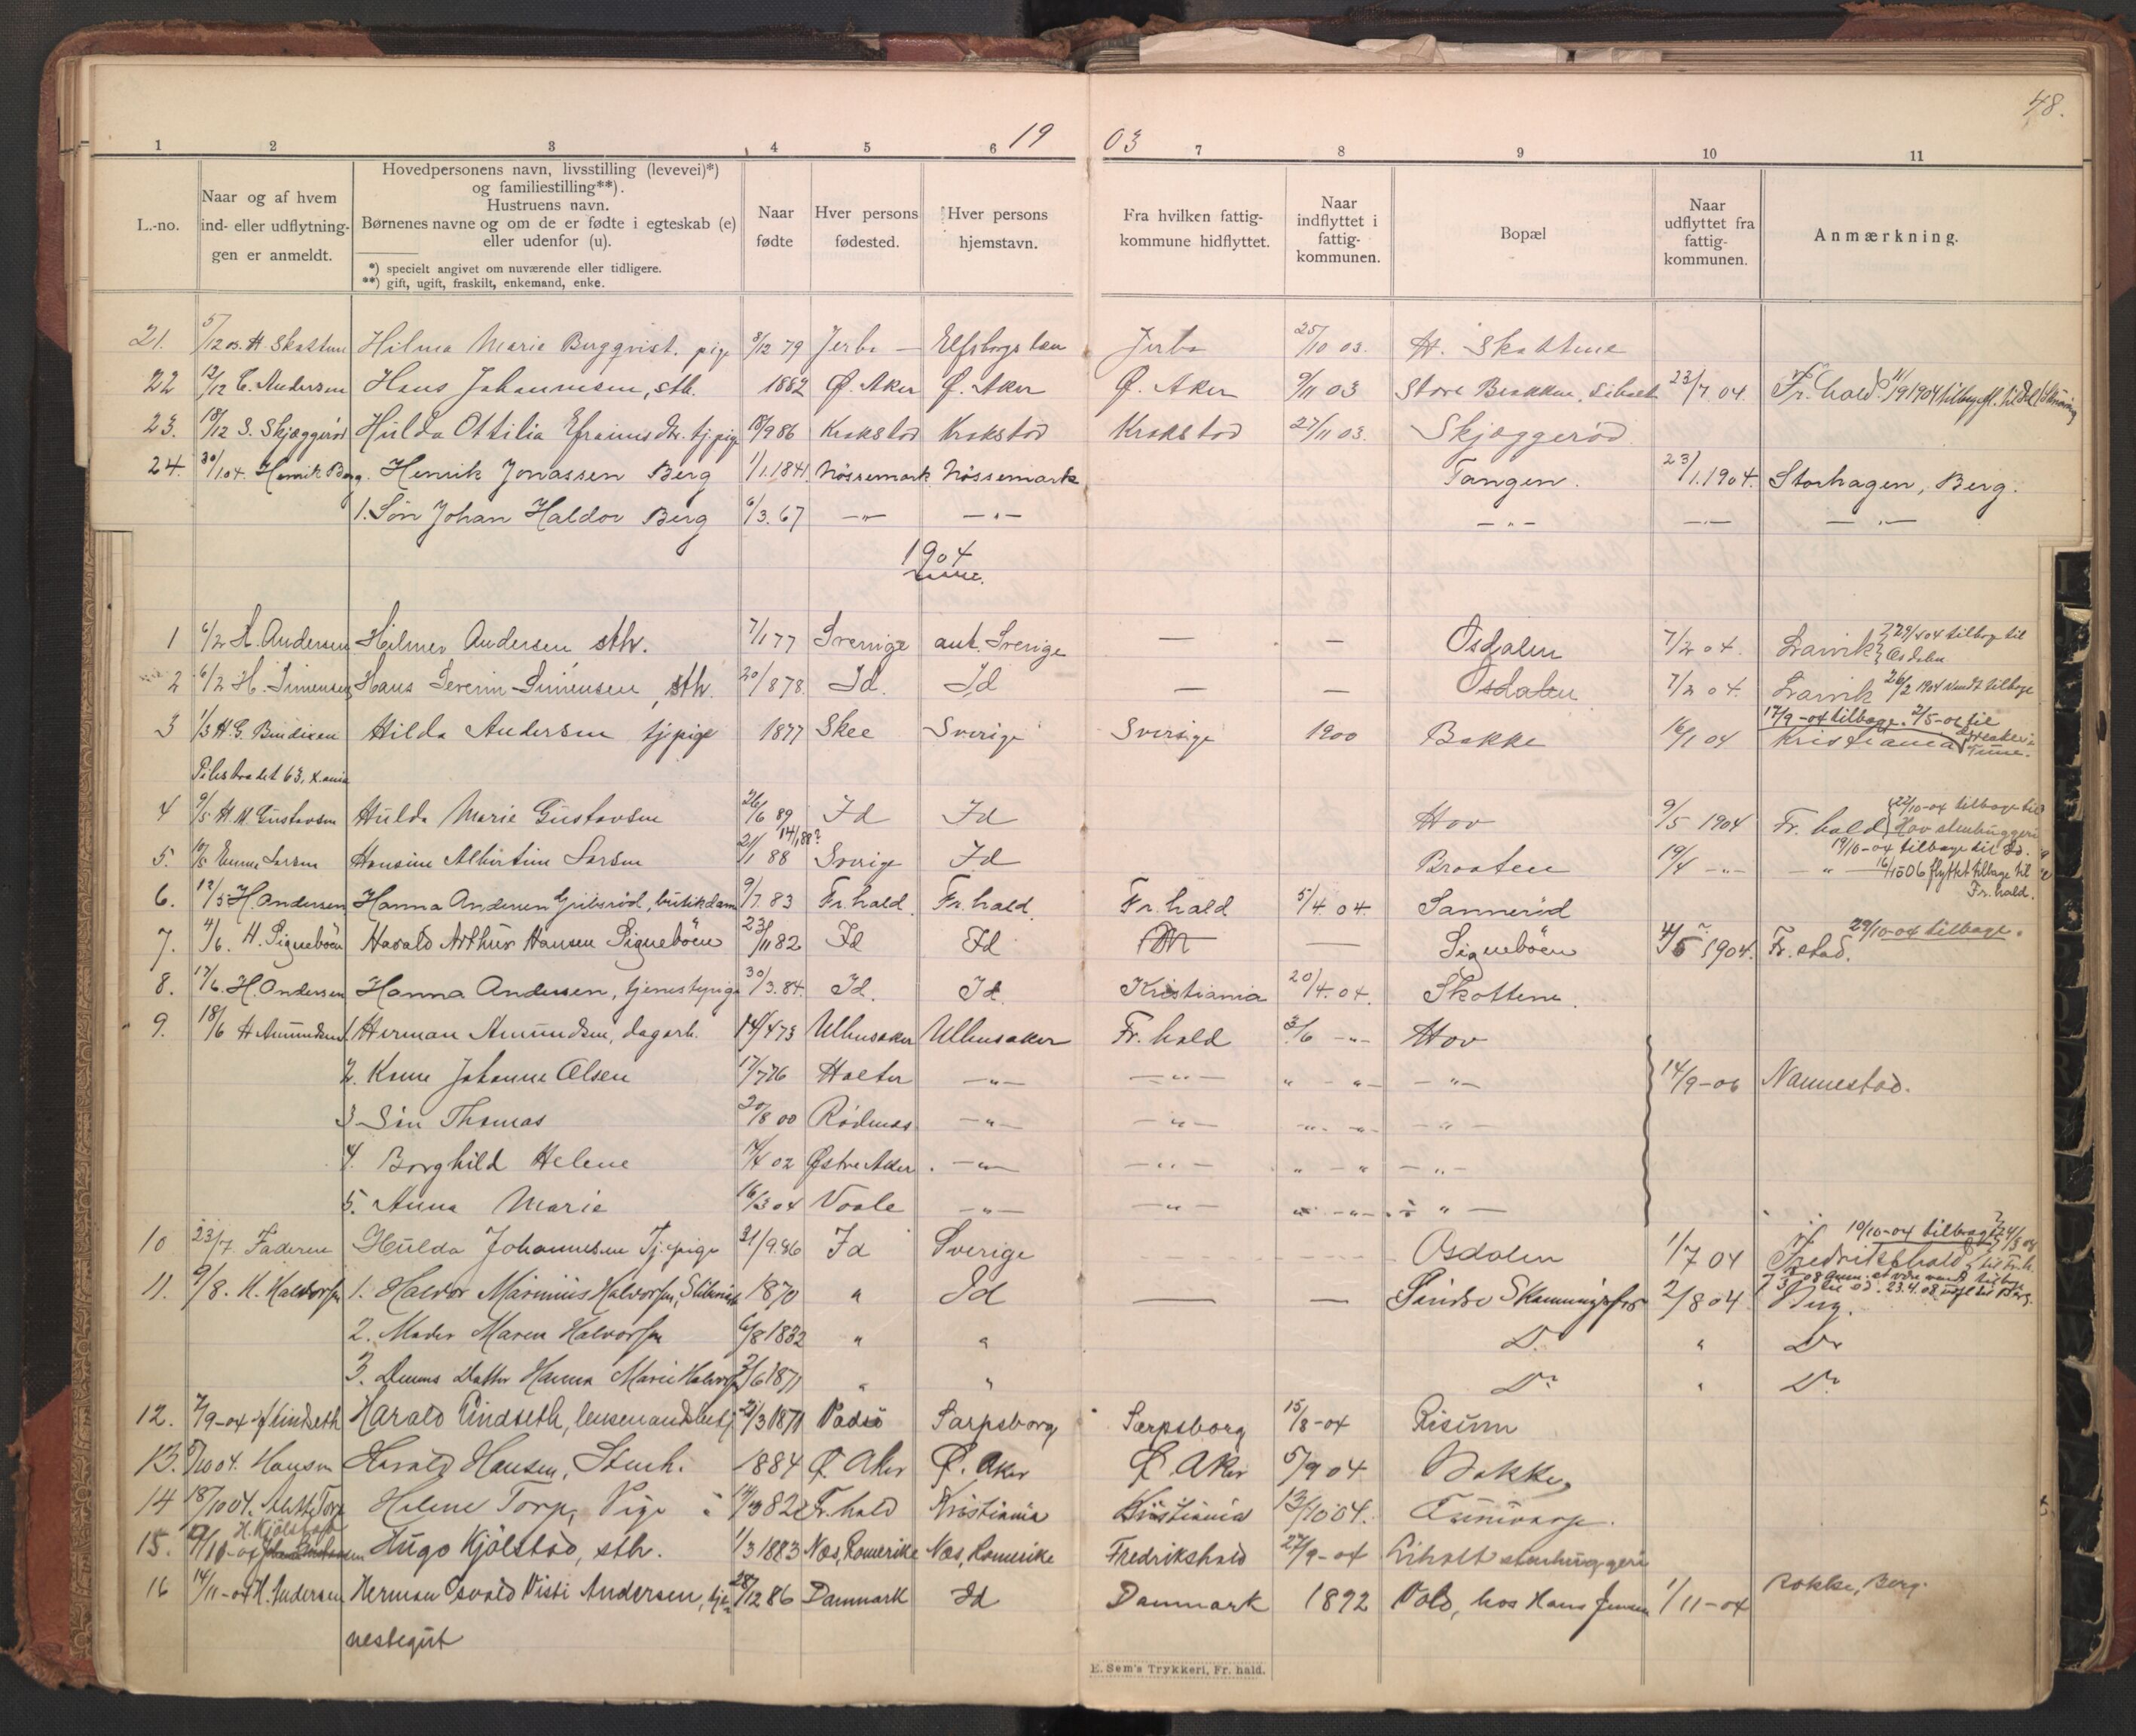 48.
19 03
1 2 3 4 5 6 7 8 9 10 11
L.-no.
Naar og af hvem
ind- eller udflytnin-
gen er anmeldt.
Hovedpersonens navn, livsstilling (levevei)*)
og familiestilling**).
Hustruens navn.
Børnenes navne og om de er fødte i egteskab (e)
eller udenfor (u).
*) specielt angivet om nuværende eller tidligere.
**) gift, ugift, fraskilt, enkemand, enke.
Naar
fødte
Hver persons
fødested.
Hver persons
hjemstavn.
Fra hvilken fattig-
kommune hidflyttet.
Naar
indflyttet i
fattig-
kommunen.
Bopæl
Naar
udflyttet fra
fattig-
kommunen.
Anmærkning.
21. 5/12 03. H. Skattene Hilma Marie Bergqvist. pige 8/12 79 Jerbo — Elfsborgs læn Jerbo 25/10 03. H. Skattene
22 12/12 C. Andersen Hans Johannesen, sth. 1882 Ø. Aker Ø. Aker Ø. Aker 9/11 03 Store Brække 23/7 04. Fr. hald 11/9 1904
23. 18/12 S. Skjæggerød Hilda Ottilia Efraimsdtr. tj.pige 18/9 86 Krokstad Krokstad Krokstad 27/11 03. Skjæggerød
24. 30/1 04. Henrik Berg. Henrik Jonassen Berg 1/1. 1841. Nössemark Nössemark Tangen. 23/1. 1904. Storhagen, Berg.
1. Søn Johan Haldor Berg 6/3. 67 —"— —"— —"— —"— —"—
1904
1 6/2 H. Andersen Hilmer Andersen sth. 7/1 77 Sverige ant. Sverige — — Osdalen 7/2 04. Larvik 29/4 04 tilbage til
Osdalen
2 6/2 H. Simensen Hans Severin Simensen, sth. 20/8 78. Id. Id — — Osdalen 7/2 04. Larvik 26/2 1904 vendt tilbage
3 1/3 H. G. Bendixen Hilda Andersen tj.pige 1877 Skee Sverige Sverige 1900 Bakke 16/1 04 Kristiania 17/9-04 tilbage. 2/5-06 til
Greaker i
Tune.
Pilestrædet 63, X.ania
4 9/5 H. M. Gustavsen Hulda Marie Gustavsen 26/6 89 Id Id Hov 9/5 1904 Fr. hald 22/10-04 tilbage til
Hov stenhuggeri
5. 10/5 Emma Larsen Hansine Albertine Larsen 21/1 88 14/1 88? Sverige Id Braaten 19/4 —"— —"— 19/10-04 tilbage til Id.
16/1506 flyttet tilbage til
Fr. hald.
6. 12/5 H. Andersen Hanna Andersen Gribsrød, butikdame 9/7. 83 Fr. hald. Fr. hald. Fr. hald 5/4. 04. Sannerød
7. 4/6. H. Signebøen Harald Arthur Hansen Signebøen 23/11 82 Id Id — Signebøen 4/5 1904. Fr. stad. 29/10-04 tilbage.
8. 17/6. H. Andersen Hanna Andersen, tjenestepige 30/3. 84. Id. Id. Kristiania 20/4. 04. Skottene.
9. 18/6 H Amundsen 1. Herman Amundsen, dagarb. 14/4 73 Ulhusaker Ulhusaker Fr. hald 3/6 —"— Hov
2. Kone Johanne Olsen 17/7 76 Holter —"— —"— " —"— —"— 14/9-06 Nannestad.
3 Søn Thomas 20/8 00 Rødenes —"— —"— " —"— —"—
4. Borghild Helene 14/4 02 Østre Aker —"— —"— " — " —"—
5. Anna Marie 16/3 04 Vaale —"— —"— " —"— —"—
10 23/7. Faderen Hulda Johannesen Tj.pige 21/9.86 Id Sverige Osdalen 1/7 04 Fredrikshald 19/10-04 tilbage
11. 9/8. H. Halvorsen 1. Halvor Marinius Halvorsen, 1870 " Id — — Søndre 2/8 04 Berg.
2. Moder Maren Halvorsen 6/8 1832 " " Do " Do
3. Dennes Datter Hanna Marie Halvorsen 2/6 1871 " " Do " Do
12. 7/9-04 Lindseth Harald Lindseth, lensmandsbetj. 21/3 1871 Vadsø Sarpsborg Sarpsborg 15/8-04 Risum
13. 5/10 04. Hansen Harald Hansen, Stenh. 1884 Ø. Aker Ø. Aker Ø. Aker 5/9 04 Bakke,
14 18/10 04. Torp Helene Torp, Pige 82 Fr. hald Kristiania Kristiania 13/10 04.
H. Kjölstad
15. Hugo Kjölstad, sth. 1/3 1883 Næs, Romerike Næs, Romerike Fredrikshald 27/9-04 Liholt stenhuggeri
16 14/11-04 H. Andersen Herman Osvald Visti Andersen, tje- 28/12 86 Danmark Id Danmark 1892 Vold, hos Hans Jensen 1/11-04 Rokke, Berg.
nestegut
E. Sem's Trykkeri, Fr. hald.